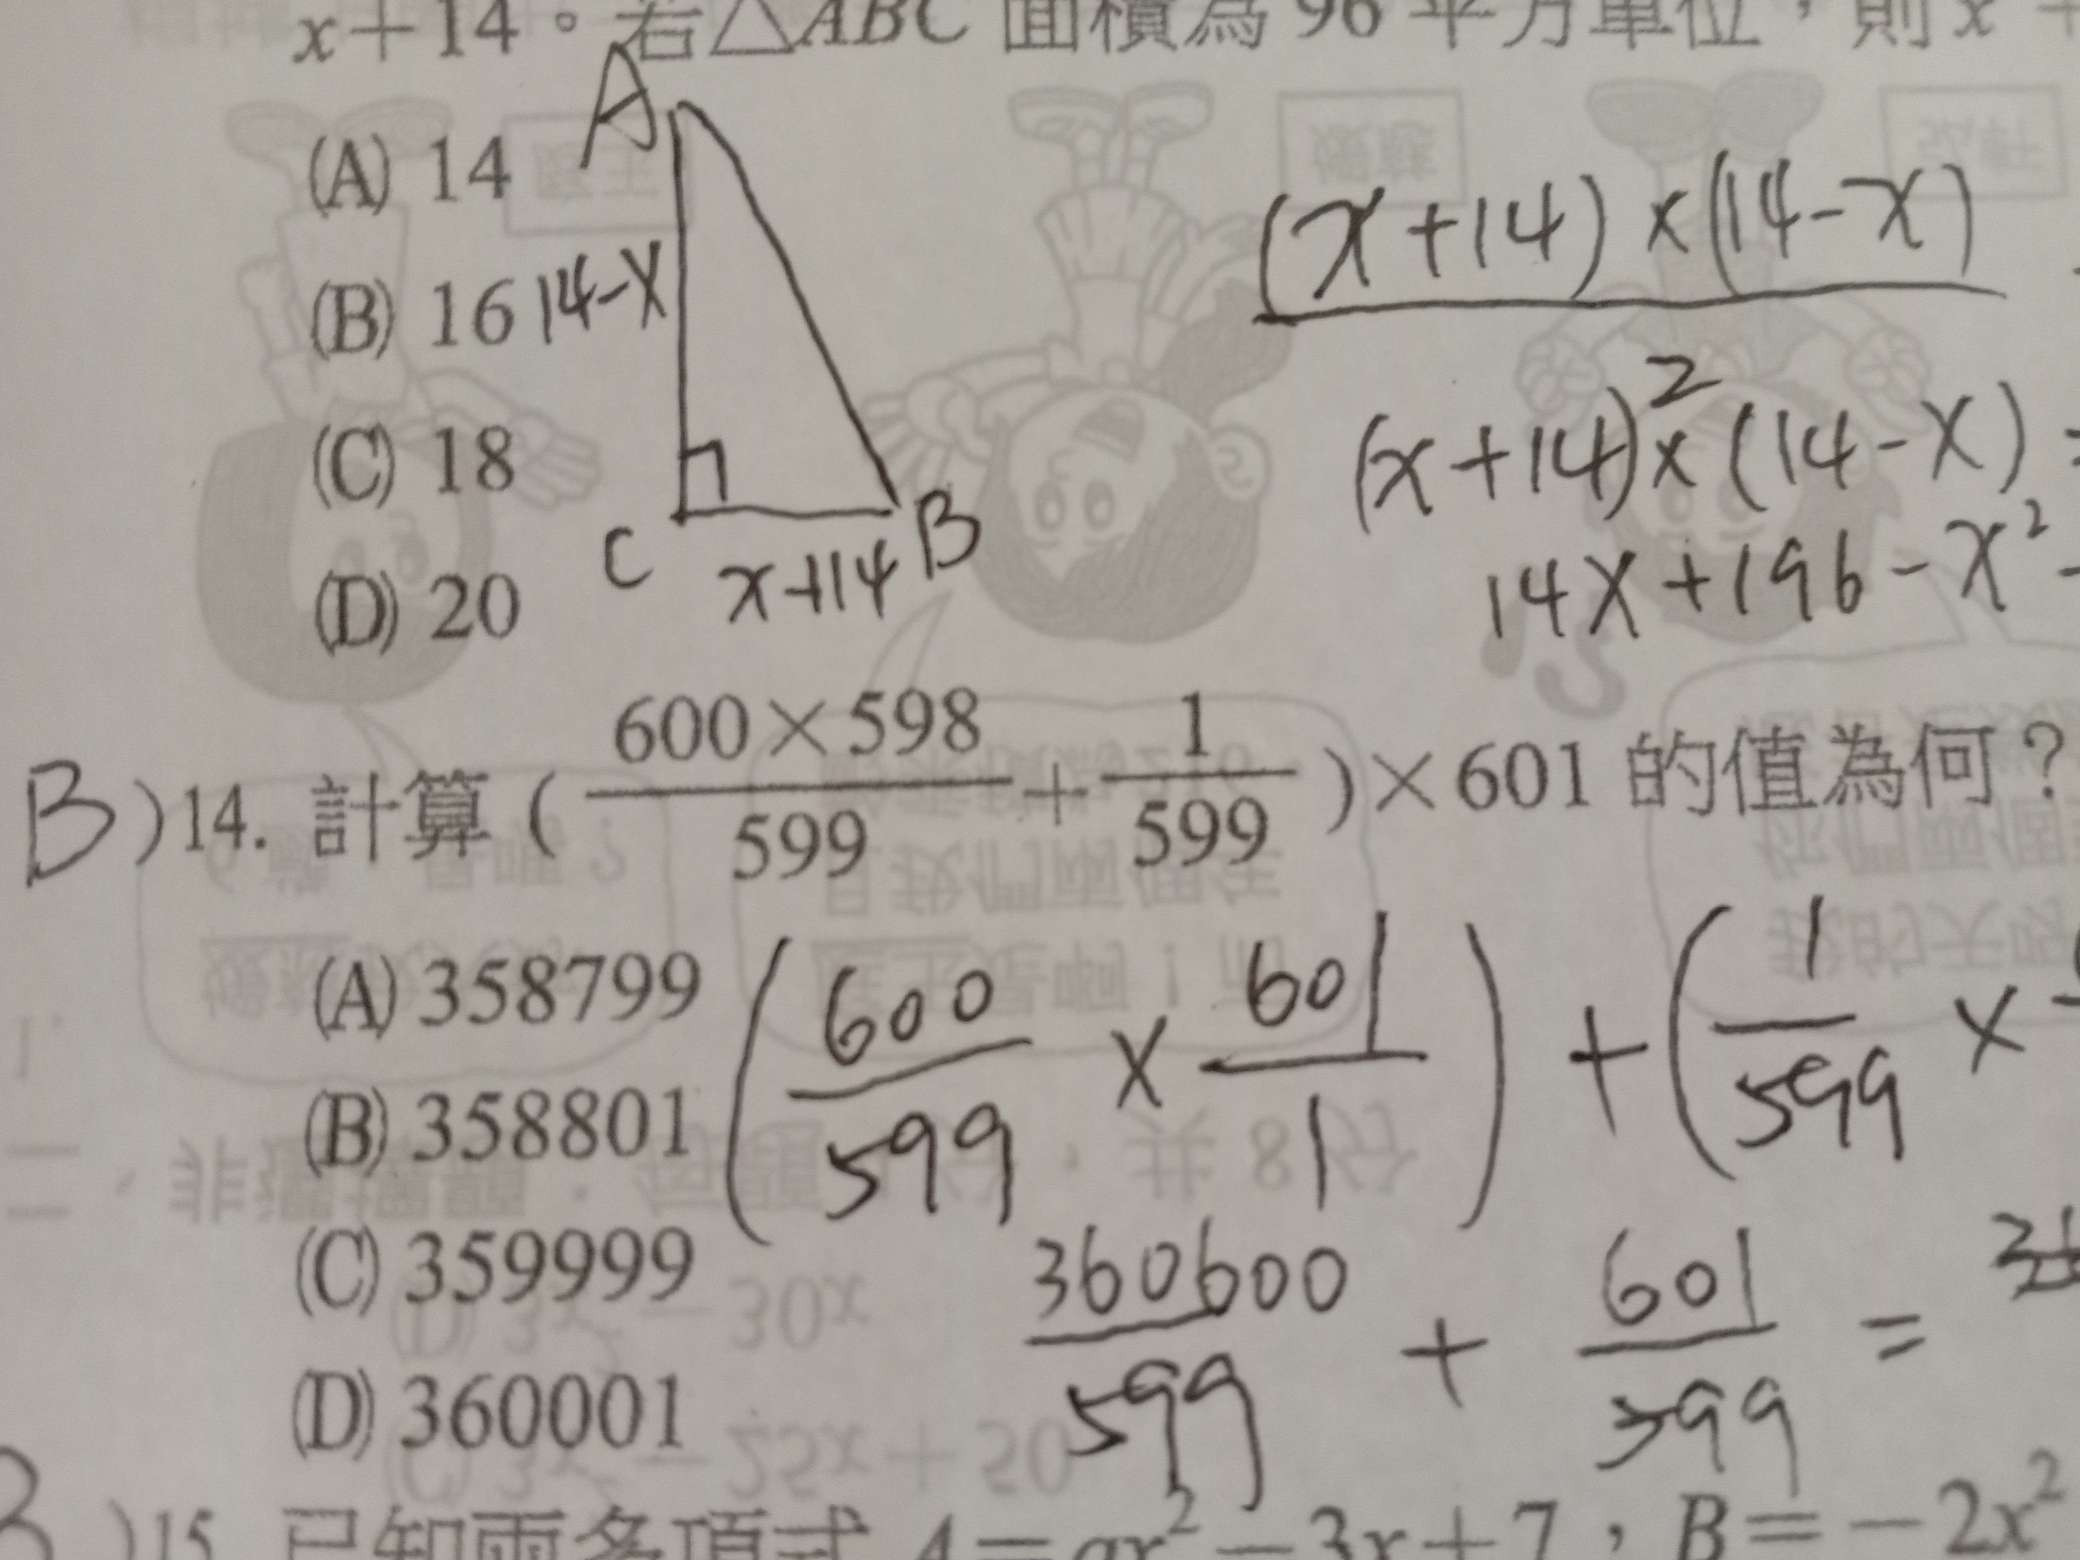 x+14。若△ABC 面積為 96 平方單位，則 x +
A
(A) 14
(x+14)×(14-x)
(B) 16
14-x
(x+14)²×(14-x) =
(C) 18
C
B
x+14
14x+196-x² -
(D) 20
B )14. 計算 ( \frac{600×598}{599} + \frac{1}{599} )×601 的值為何？
(A) 358799
( \frac{600}{599} × \frac{601}{1} ) + ( \frac{1}{599} ×
(B) 358801
(C) 359999
\frac{360600}{599} + \frac{601}{599} =
(D) 360001
)15. 已知兩多項式 A=ax²-3x+7，B=-2x²